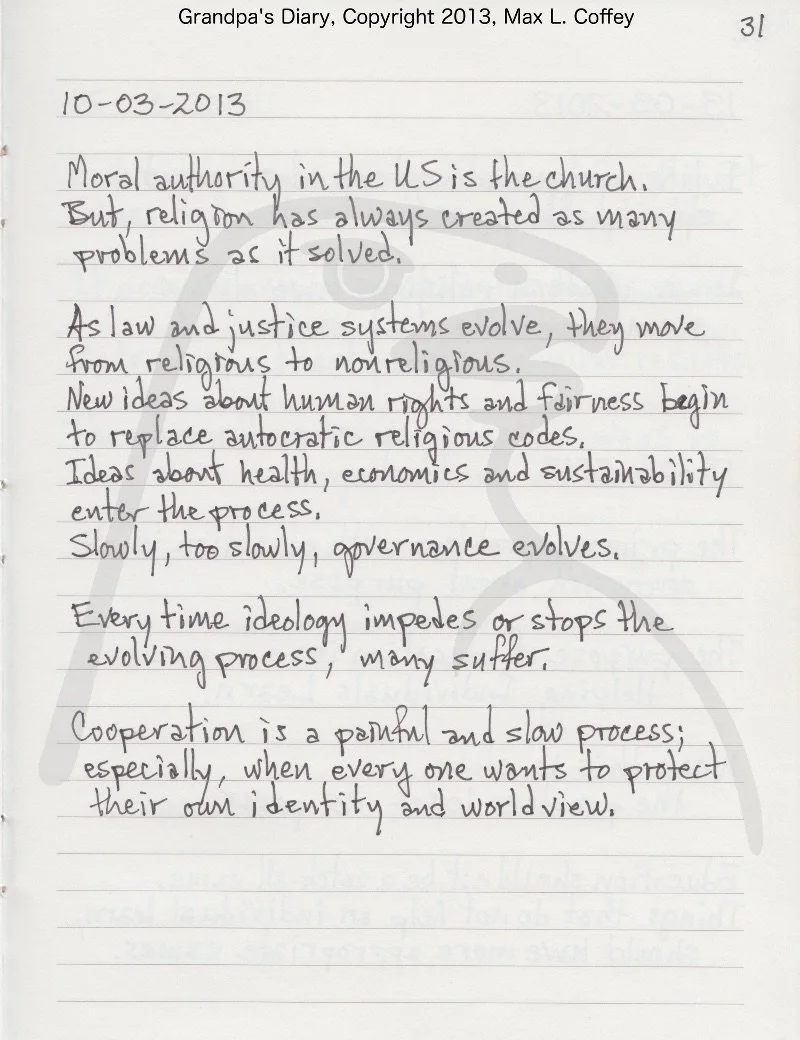 Grandpa's Diary, Copyright 2013, Max L. Coffey
31
10-03-2013
Moral authority in the US is the church.
But, religion has always created as many
problems as it solved.
As law and justice systems evolve, they move
from religious to nonreligious.
New ideas about human rights and fairness begin
to replace autocratic religious codes.
Ideas about health, economics and sustainability
enter the process.
Slowly, too slowly, governance evolves.
Every time ideology impedes or stops the
evolving process, many suffer.
Cooperation is a painful and slow process;
especially, when every one wants to protect
their own identity and world view.